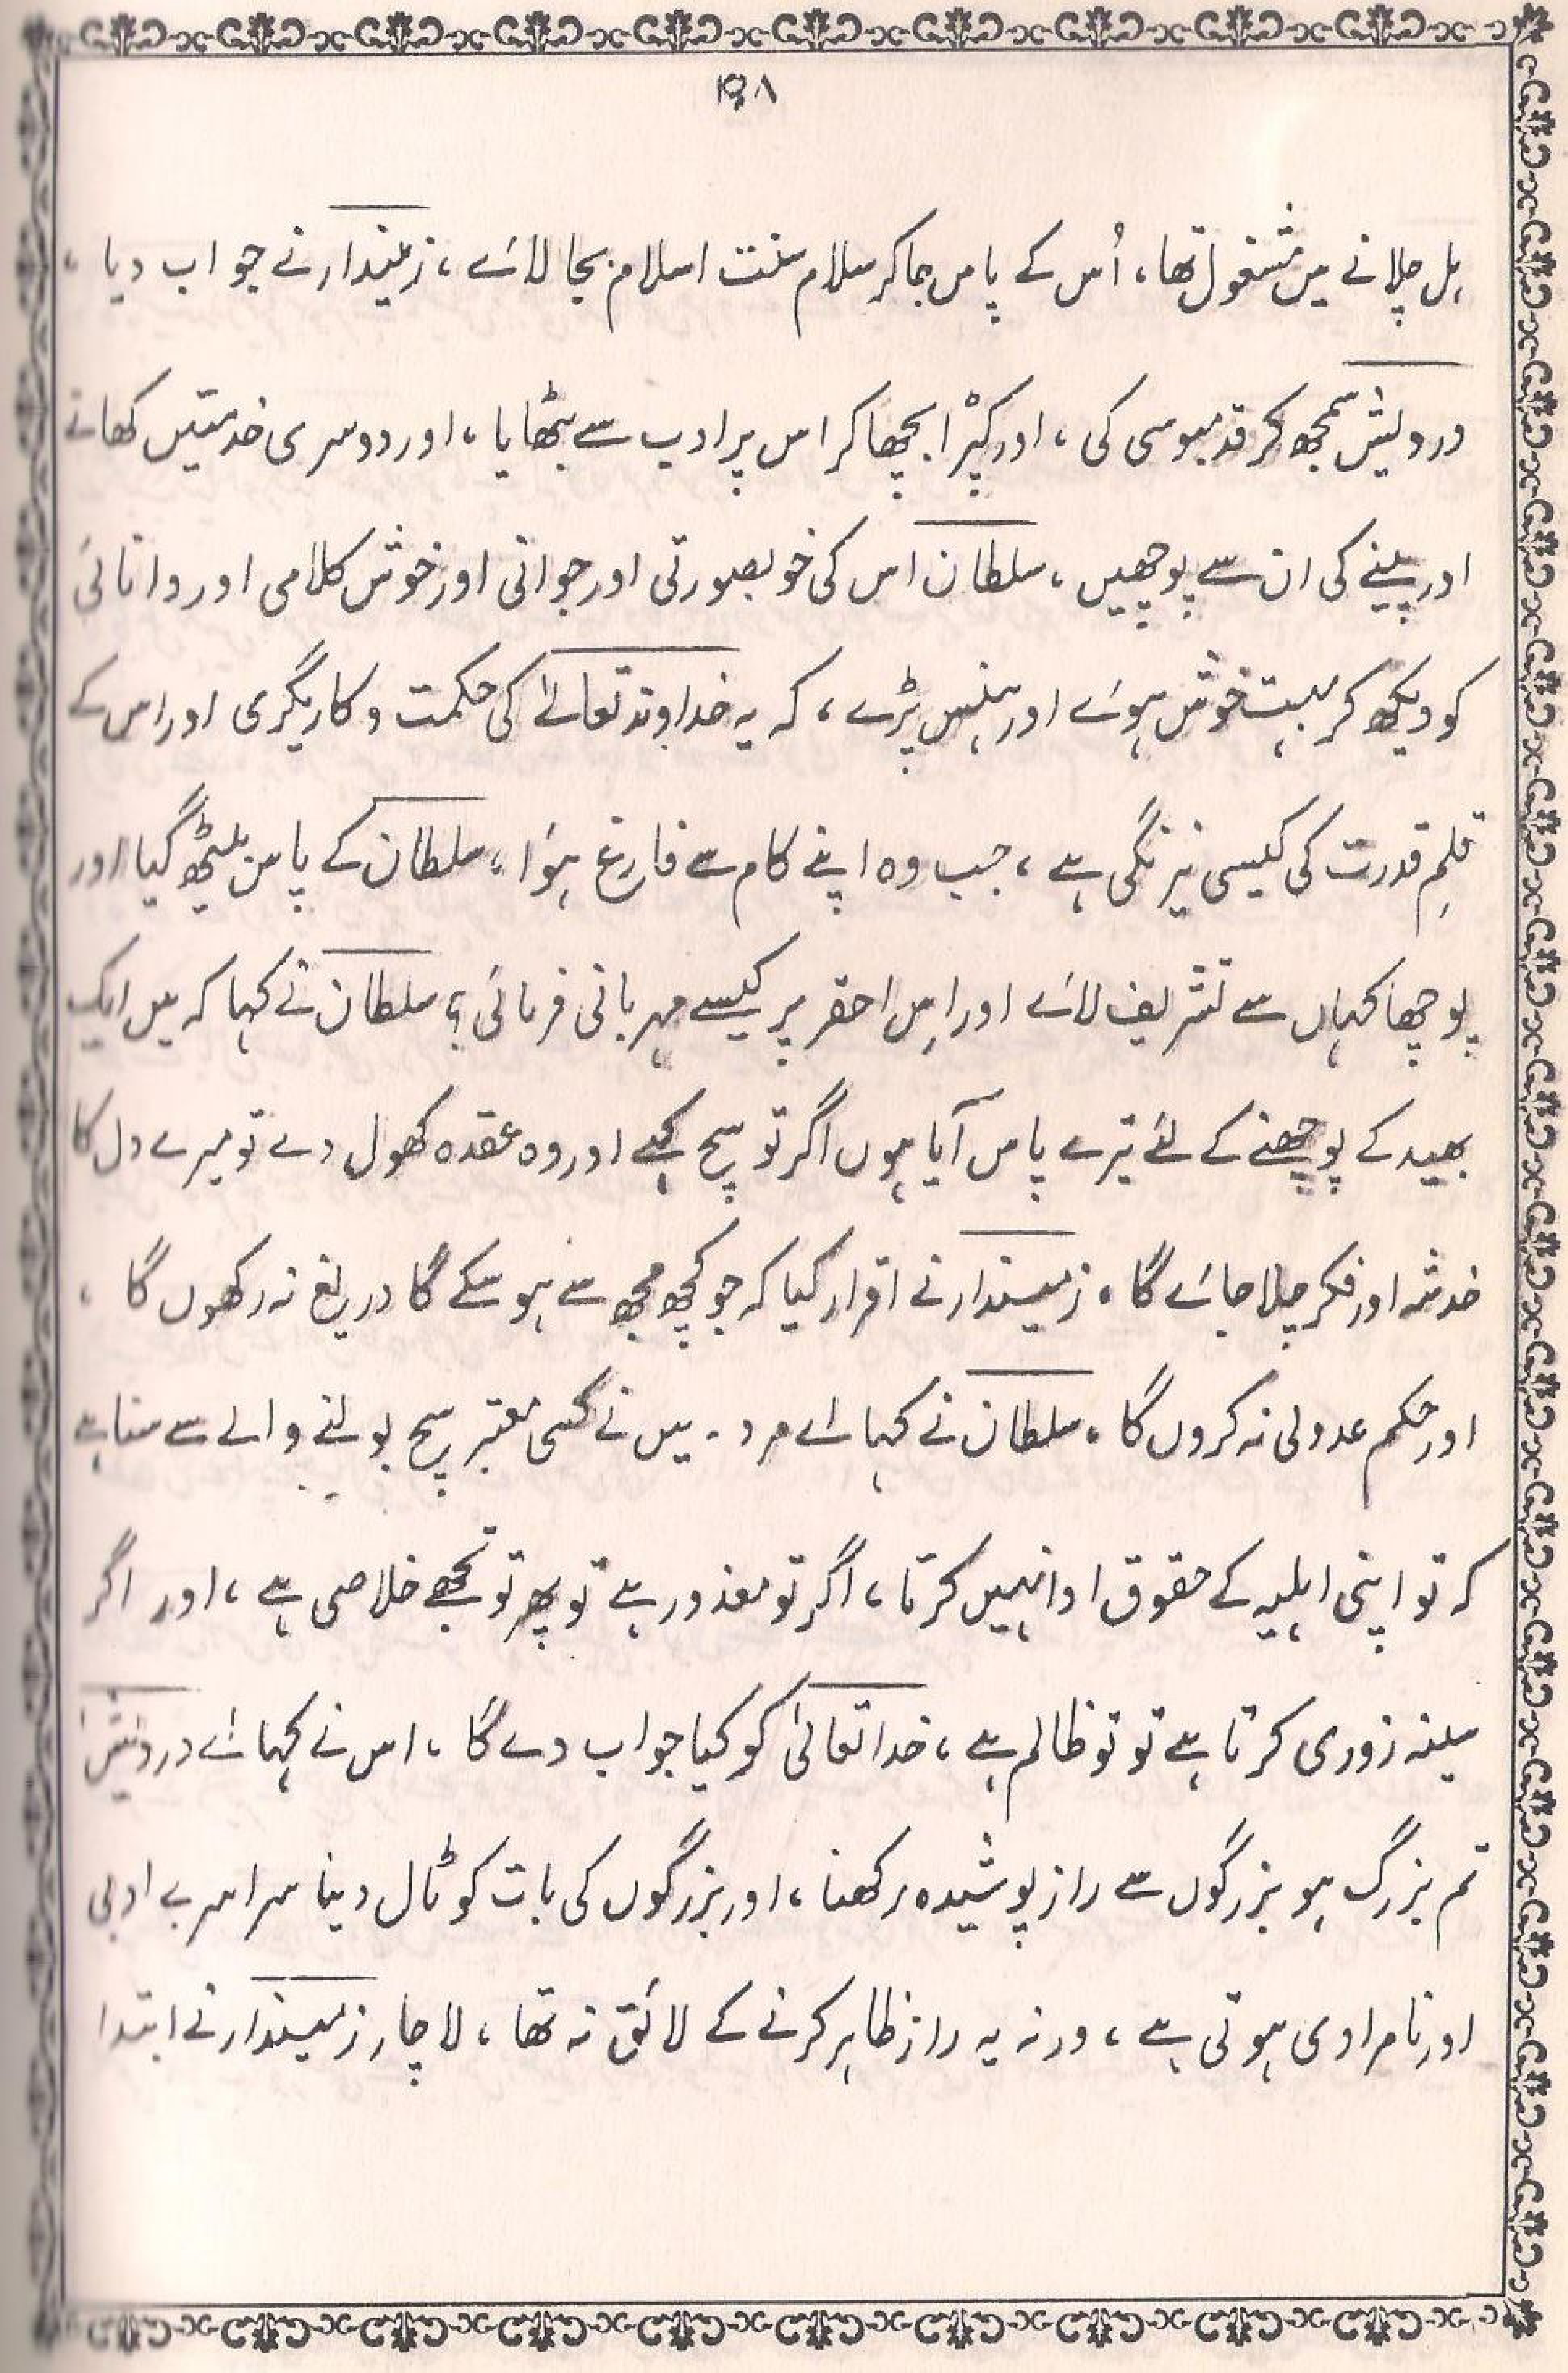 ۴۹۸
ہل چلانے میں مشغول تھا، اُس کے پاس جاکر سلام سنت اسلام بجا لائے، زمیندار نے جواب دیا،
درویش سمجھ کر قدمبوسی کی، اور کپڑا بچھا کر اس پر ادب سے بٹھایا، اور دوسری خدمتیں کھانے
اور پینے کی ان سے پوچھیں، سلطان اس کی خوبصورتی اور جوانی اور خوش کلامی اور دانائی
کو دیکھ کر بہت خوش ہوئے اور ہنس پڑے، کہ یہ خداوند تعالےٰ کی حکمت و کاریگری اور اس کے
قلمِ قدرت کی کیسی نیرنگی ہے، جب وہ اپنے کام سے فارغ ہؤا، سلطان کے پاس بیٹھ گیا اور
پوچھا کہاں سے تشریف لائے اور اِس احقر پر کیسے مہربانی فرمائی؟ سلطان نے کہا کہ میں ایک
بھید کے پوچھنے کے لئے تیرے پاس آیا ہوں اگر تو سچ کہے اور وہ عقدہ کھول دے تو میرے دل کا
خدشہ اور فکر چلا جائے گا، زمیندار نے اقرار کیا کہ جو کچھ مجھ سے ہو سکے گا دریغ نہ رکھوں گا،
اور حکم عدولی نہ کروں گا، سلطان نے کہا اے مرد۔ میں نے کسی معتبر سچ بولنے والے سے سنا ہے
کہ تو اپنی اہلیہ کے حقوق ادا نہیں کرتا، اگر تو معذور ہے تو پھر تو تجھے خلاصی ہے، اور اگر
سینہ زوری کرتا ہے تو تو ظالم ہے، خدا تعالیٰ کو کیا جواب دے گا، اس نے کہا اے درویش
تم بزرگ ہو بزرگوں سے راز پوشیدہ رکھنا، اور بزرگوں کی بات کو ٹال دینا سراسر بے ادبی
اور نامرادی ہوتی ہے، ورنہ یہ راز ظاہر کرنے کے لائق نہ تھا، لاچار زمیندار نے ابتدا